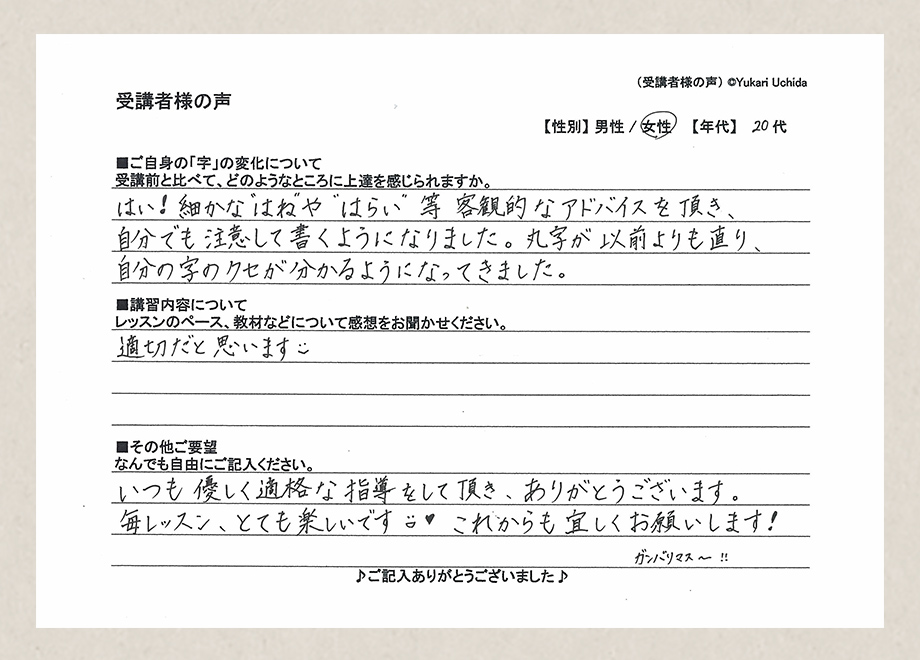 （受講者様の声）©Yukari Uchida
受講者様の声
【性別】男性 / 女性 【年代】 20代
■ご自身の「字」の変化について
受講前と比べて、どのようなところに上達を感じられますか。
はい！細かな"はね"や"はらい"等 客観的なアドバイスを頂き、
自分でも注意して書くようになりました。丸字が以前よりも直り、
自分の字のクセが分かるようになってきました。
■講習内容について
レッスンのペース、教材などについて感想をお聞かせください。
適切だと思います
■その他ご要望
なんでも自由にご記入ください。
いつも優しく適格な指導をして頂き、ありがとうございます。
毎レッスン、とても楽しいです ♥ これからも宜しくお願いします！
ガンバリマス〜 !!
♪ご記入ありがとうございました♪